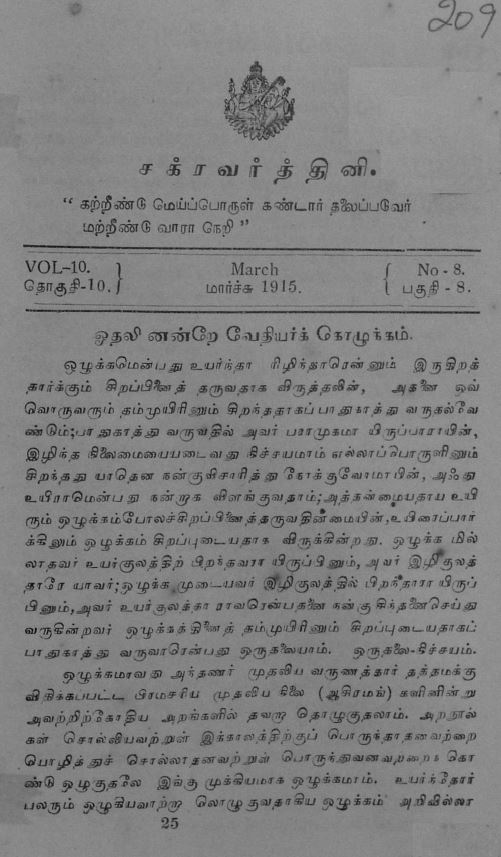 209
சக்ரவர்த்தினி.
“ கற்றீண்டு மெய்ப்பொருள் கண்டார் தலைப்படுவேர்
மற்றீண்டு வாரா நெறி ”
VOL-10. } March { No - 8.
தொகுதி-10. } மார்ச்சு 1915. { பகுதி - 8.
ஓதலி னன்றே வேதியர்க் கொழுக்கம்.
ஒழுக்கமென்பது உயர்ந்தா ரிழிந்தாரென்னும் இருதிறத்
தார்க்கும் சிறப்பினைத் தருவதாக விருத்தலின், அதனை ஒவ்
வொருவரும் தம்முயிரினும் சிறந்ததாகப் பாதுகாத்து வருதல்வே
ண்டும்;பாதுகாத்து வருவதில் அவர் பராமுகமா யிருப்பாராயின்,
இழிந்த நிலைமையையடைவது நிச்சயமாம் எல்லாப்பொருளினும்
சிறந்தது யாதென நன்குவிசாரித்து நோக்குவோமாயின், அஃது
உயிராமென்பது நன்றாக விளங்குவதாம்;அத்தன்மையதாய உயி
ரும் ஒழுக்கம்போலச்சிறப்பினைத்தருவதின்மையின்,உயிரைப்பார்
க்கினும் ஒழுக்கம் சிறப்புடையதாக விருக்கின்றது. ஒழுக்க மில்
லாதவர் உயர்குலத்திற் பிறந்தவரா யிருப்பினும், அவர் இழிகுலத்
தாரே யாவர்;ஒழுக்க முடையவர் இழிகுலத்தில் பிறந்தாரா யிருப்
பினும்,அவர் உயர்குலத்தா ராவரென்பதனை நன்கு சிந்தனைசெய்து
வருகின்றவர் ஒழுக்கத்தினைத் தம்முயிரினும் சிறப்புடையதாகப்
பாதுகாத்து வருவாரென்பது ஒருதலையாம். ஒருதலை-நிச்சயம்.
ஒழுக்கமாவது அந்தணர் முதலிய வருணத்தார் தத்தமக்கு
விதிக்கப்பட்ட பிரமசரிய முதலிய நிலை (ஆசிரமங்) களினின்று
அவற்றிற்கோதிய அறங்களில் தவறா தொழுகுதலாம். அறநூல்
கள் சொல்லியவற்றுள் இக்காலத்திற்குப் பொருந்தாதனவற்றை
யொழித்துச் சொல்லாதனவற்றுள் பொருந்துவனவற்றைக் கொ
ண்டு ஒழுகுதலே இங்கு முக்கியமாக ஒழுக்கமாம். உயர்ந்தோர்
பலரும் ஒழுகியவாற்றா லொழுகுவதாகிய ஒழுக்கம் அறிவில்லா
25